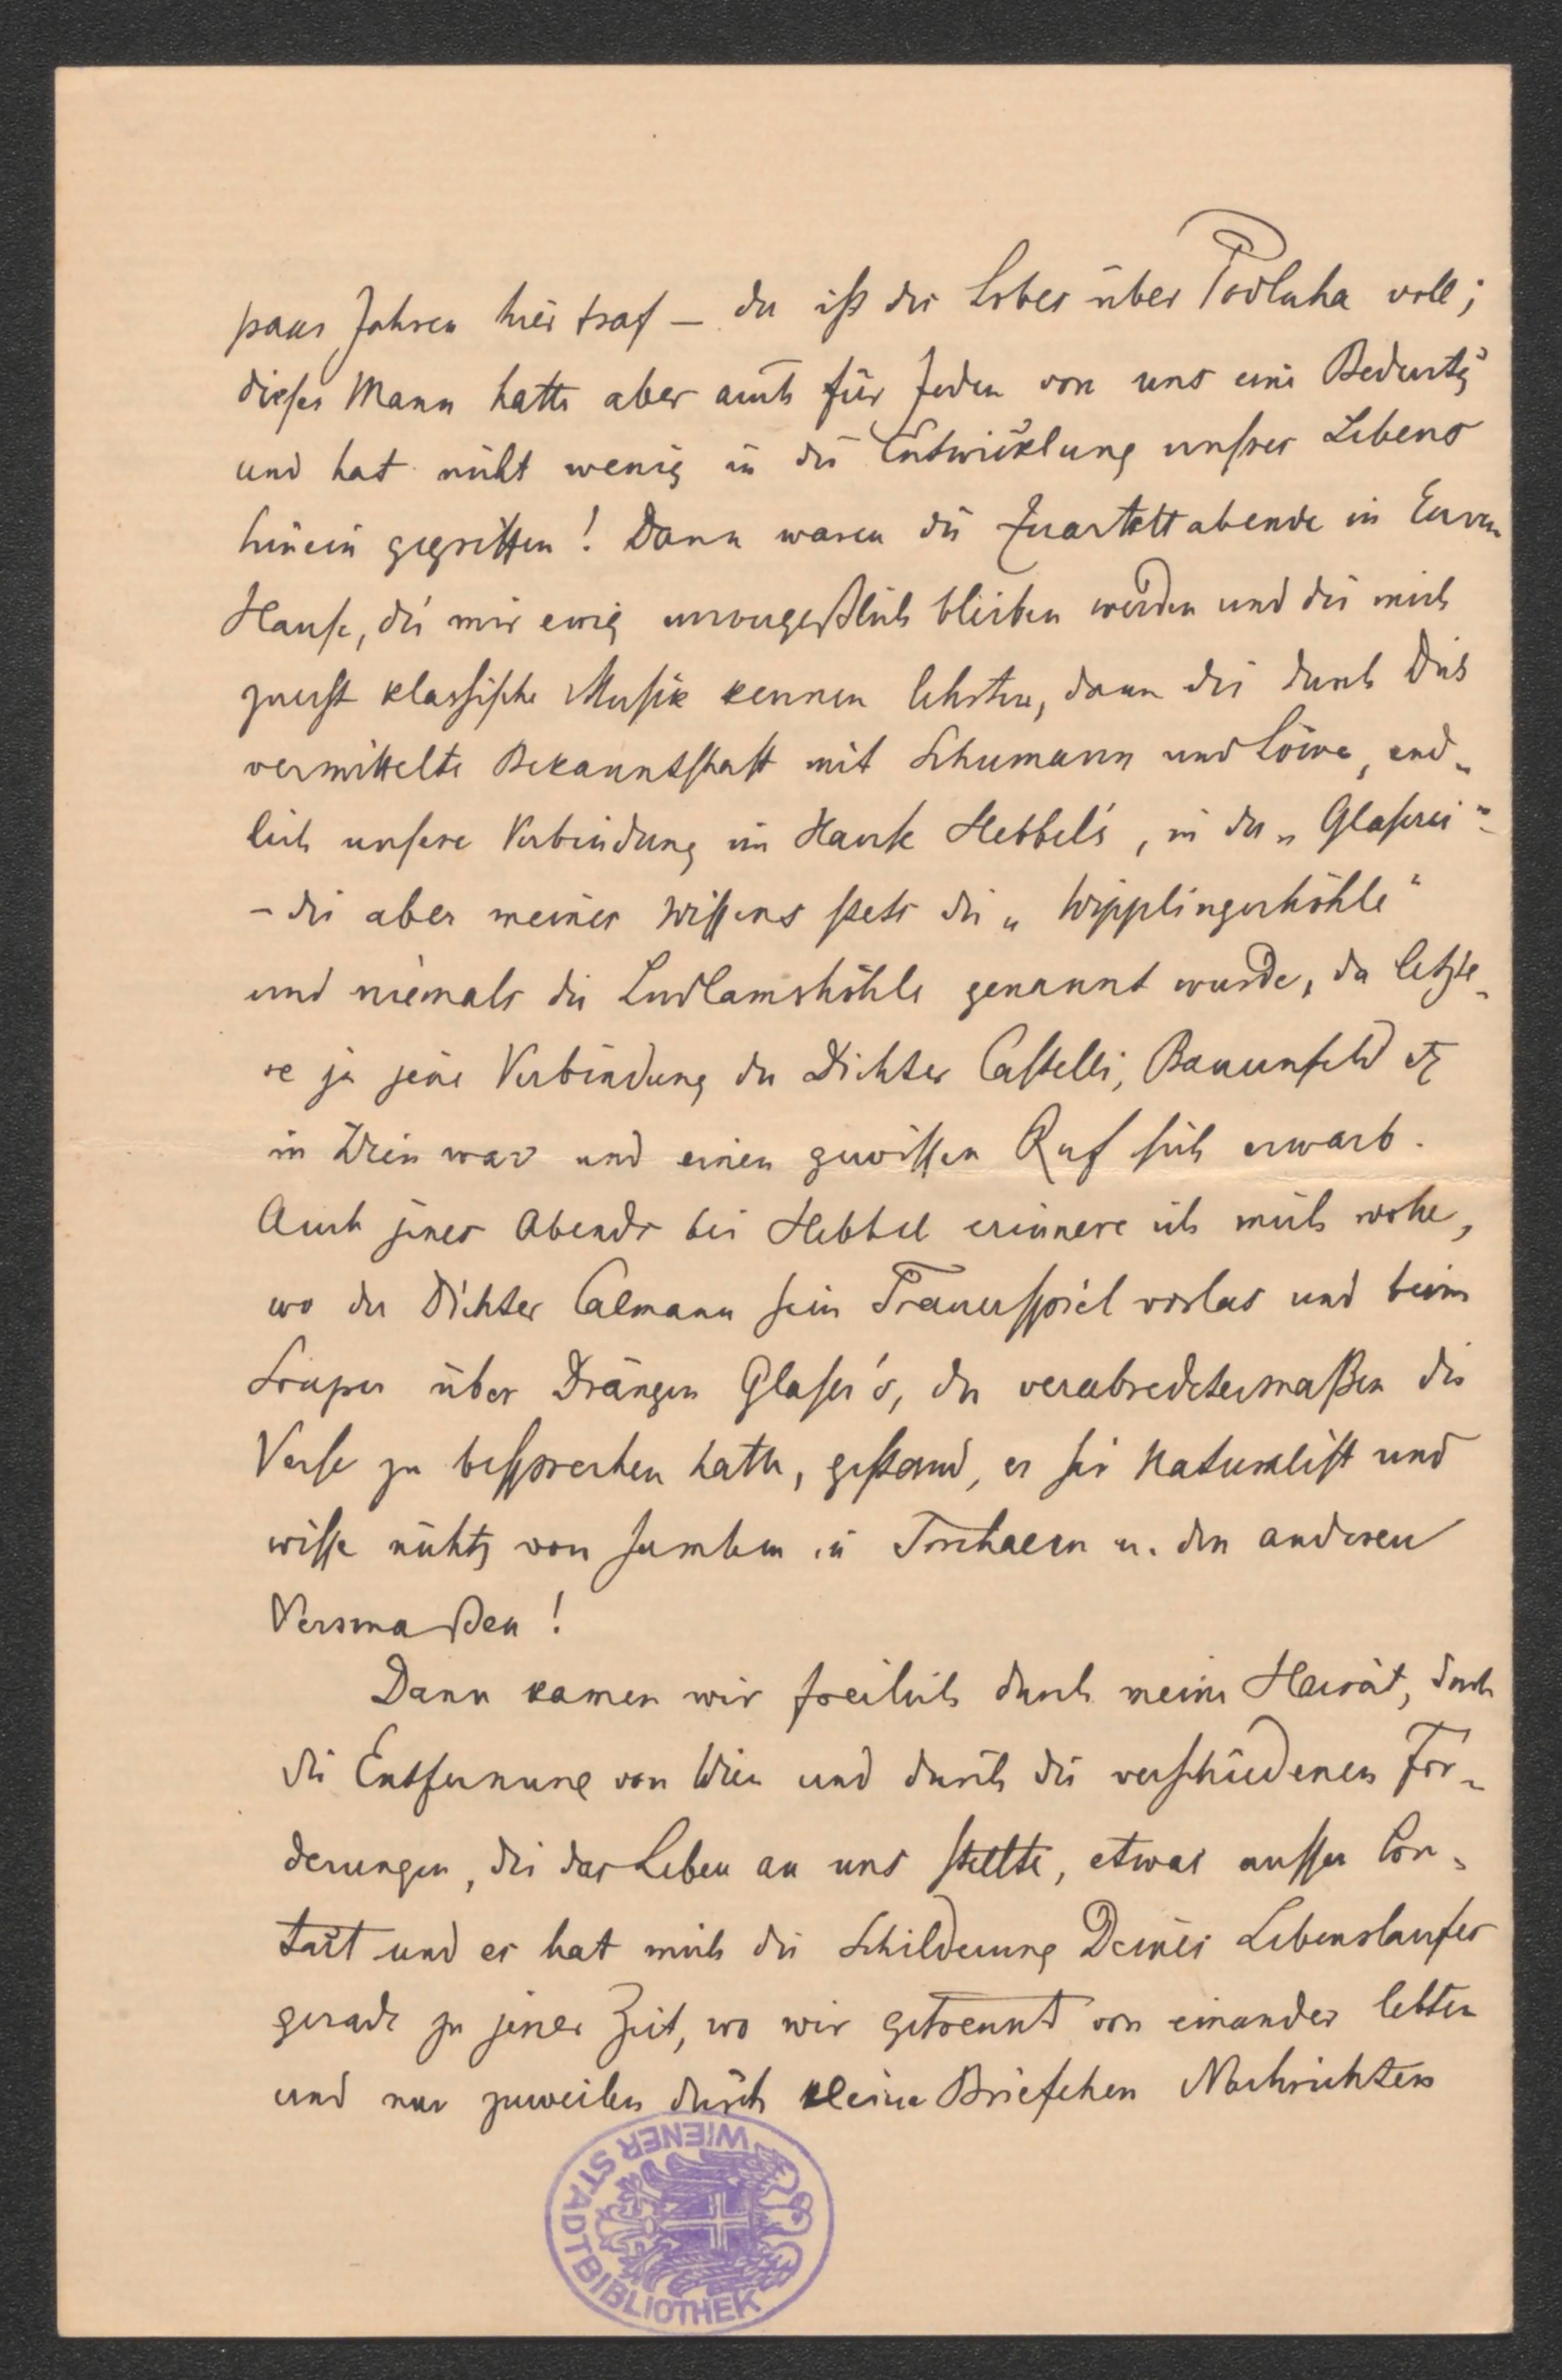 paar Jahren hier traf – der ist des Lobes über Podluha voll;
dieser Mann hatte aber auch für Jeden von uns eine Bedeutg
und hat nicht wenig in die Entwicklung unsres Lebens
hinein gegriffen! Dann waren die Quartettabende in Eurem
Hause, die mir ewig unvergeßlich bleiben werden und die mich
zuerst klassische Musik kennen lehrten, dann die durch Dich
vermittelte Bekanntschaft mit Schumann und Löwe, end-
lich unsere Verbindung im Hause Hebbel's, in der „Glaserei"-
– die aber meines Wissens stets die „Wipplingerhöhle"
und niemals die Ludlamshöhle genannt wurde, da letzte-
re ja jene Verbindung der Dichter Castelli, Bauernfeld etz
in Wien war und einen gewissen Ruf sich erwarb.
Auch jenes Abends bei Hebbel erinnere ich mich wohl,
wo der Dichter Calmann sein Trauerspiel vorlas und beim
Souper über Drängen Glaser's, der verabredetermaßen die
Verse zu besprechen hatte, gestand, er sei Naturalist und
wisse nichts von Jamben, Trochaeen u. den anderen
Versmaßen!
Dann kamen wir freilich durch meine Heirat, durch
die Entfernung von Wien und durch die verschiedenen For-
derungen, die das Leben an uns stellte, etwas ausser Con-
tact und es hat mich die Schilderung Deines Lebenslaufes
gerade zu jener Zeit, wo wir getrennt von einander lebten
und nur zuweilen durch kleine Briefchen Nachrichten
WIENER STADTBIBLIOTHEK